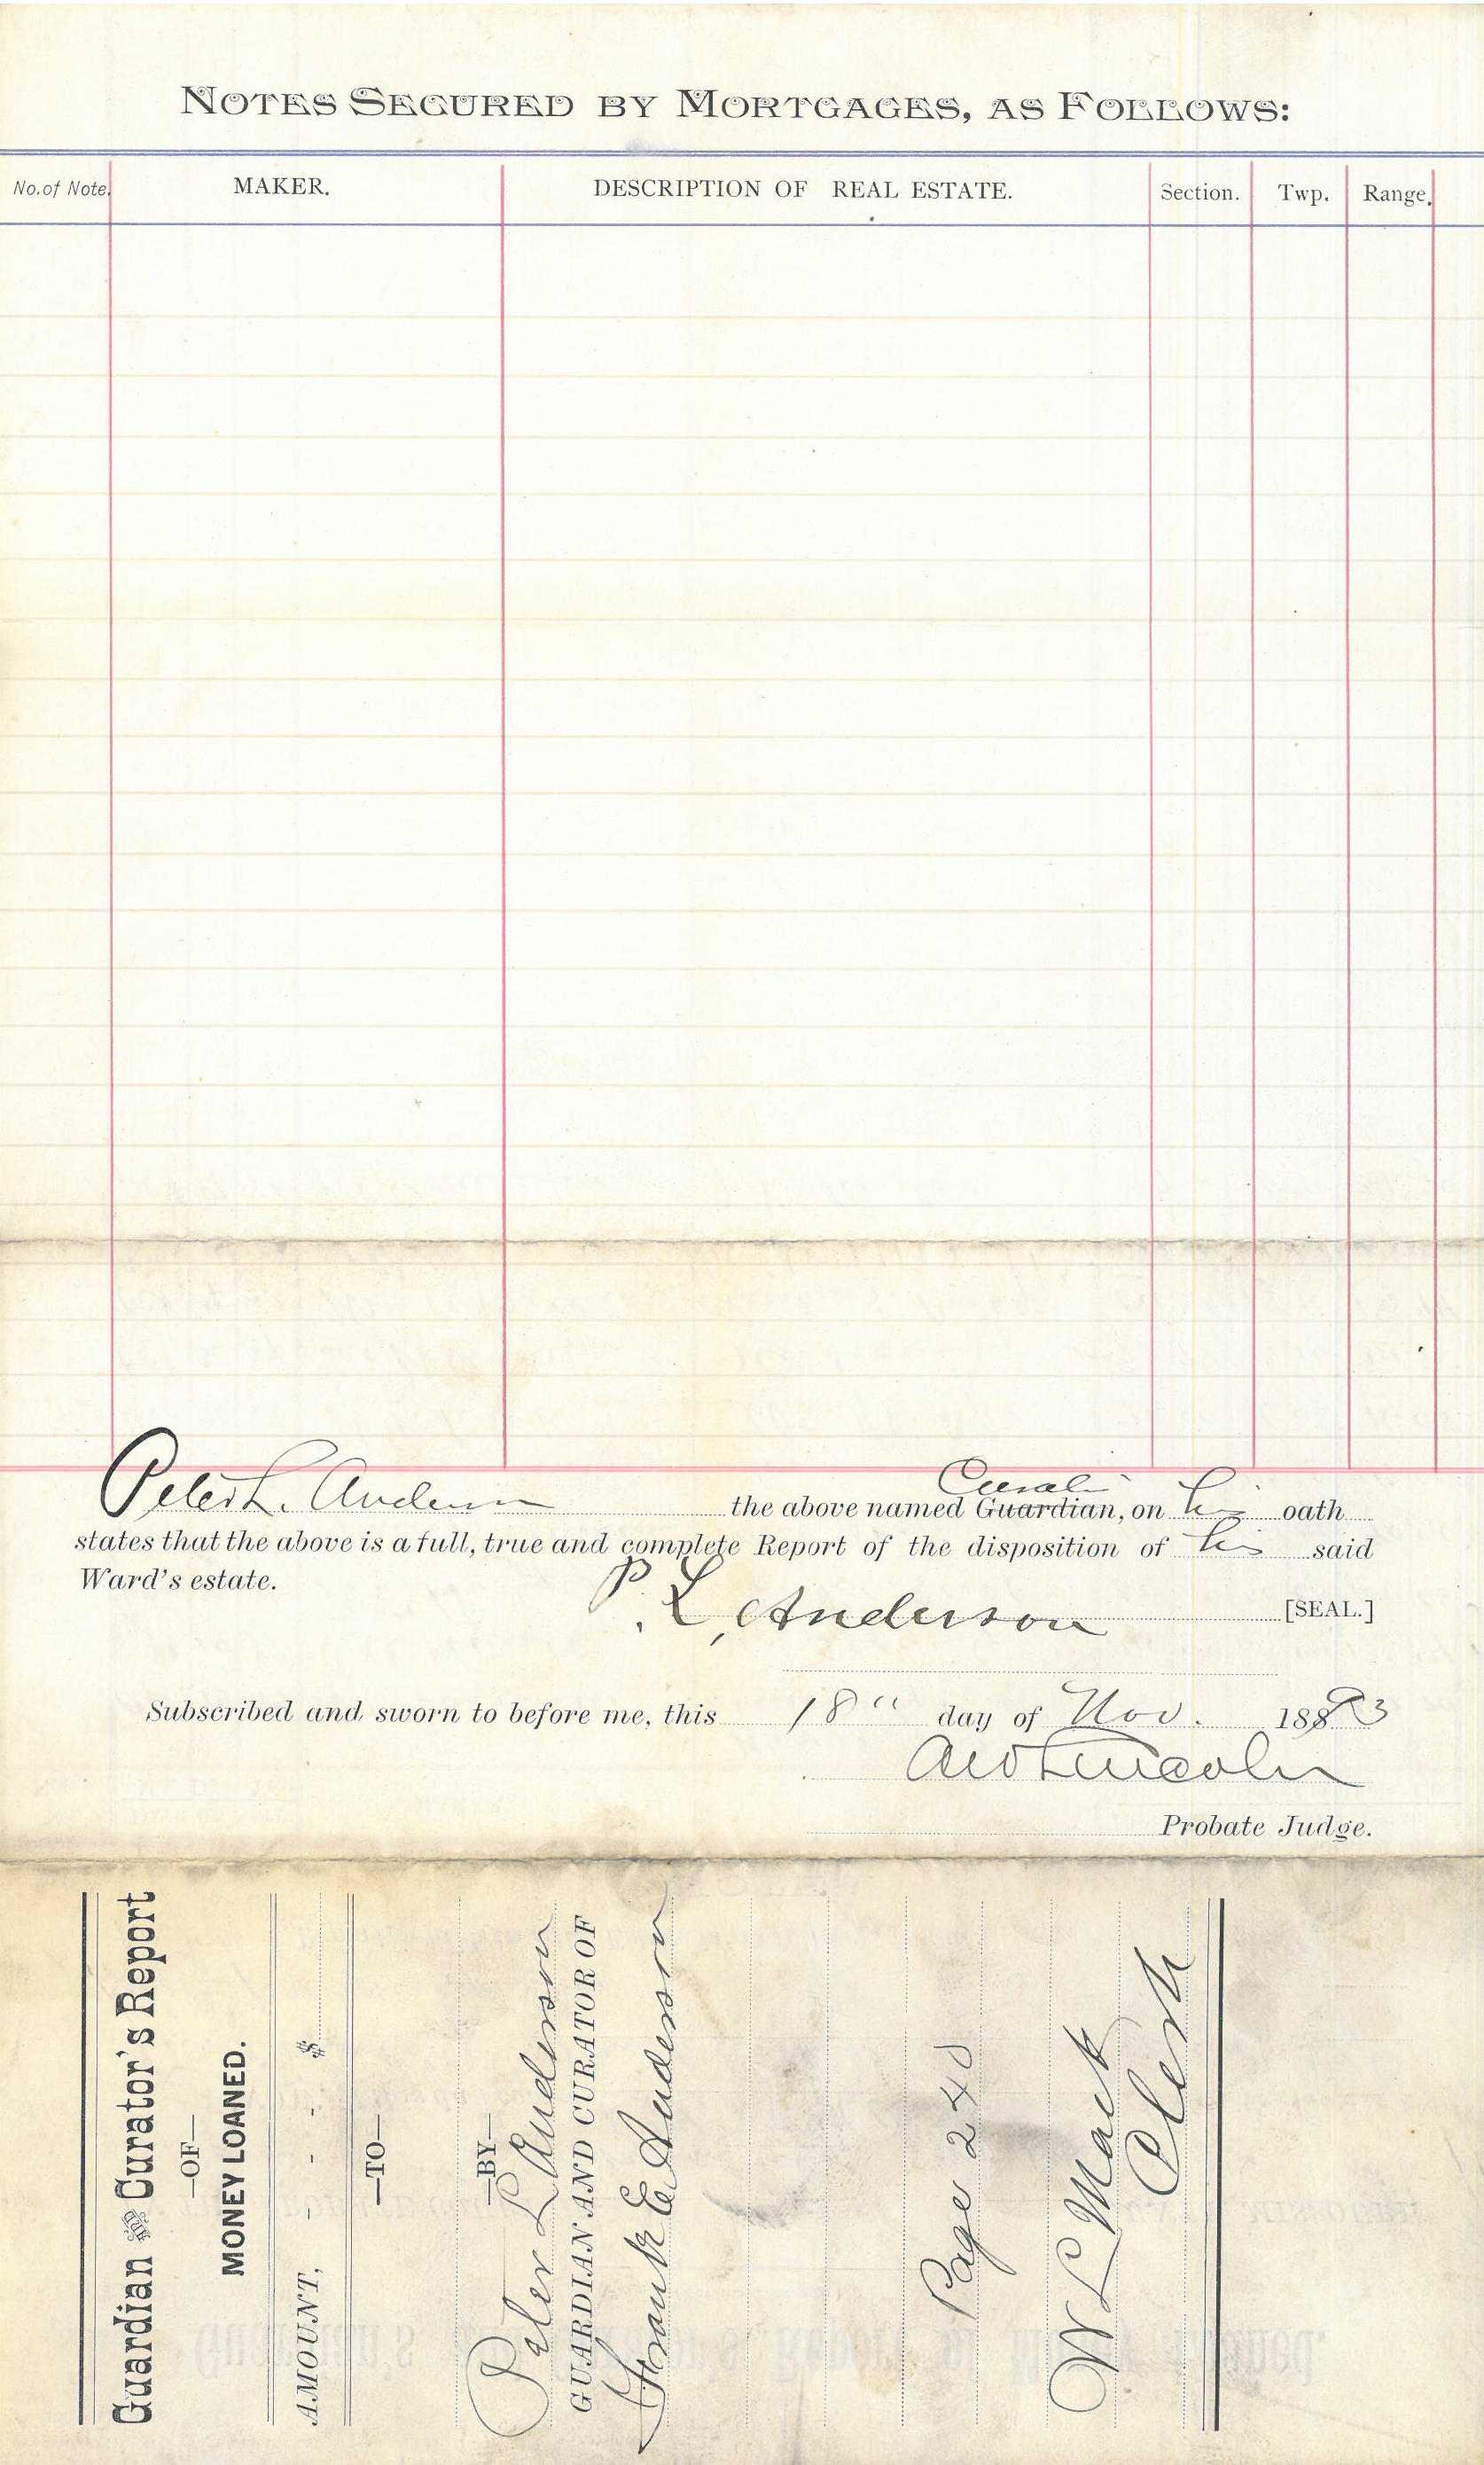 NOTES SECURED BY MORTGAGES, AS FOLLOWS:
No. of Note. MAKER. DESCRIPTION OF REAL ESTATE. Section. Twp. Range.
Curator
Peter L. Anderson the above named Guardian, on his oath
states that the above is a full, true and complete Report of the disposition of his said
Ward's estate.
P. L. Anderson [SEAL.]
Subscribed and sworn to before me, this 18" day of Nov. 1893
A W Lincoln
Probate Judge.
Guardian AND Curator's Report
—OF—
MONEY LOANED.
AMOUNT, - - - - $
—TO—
—BY—
Peter L Anderson
GUARDIAN AND CURATOR OF
Frank E Anderson
Page 240
W L Mack
Clerk